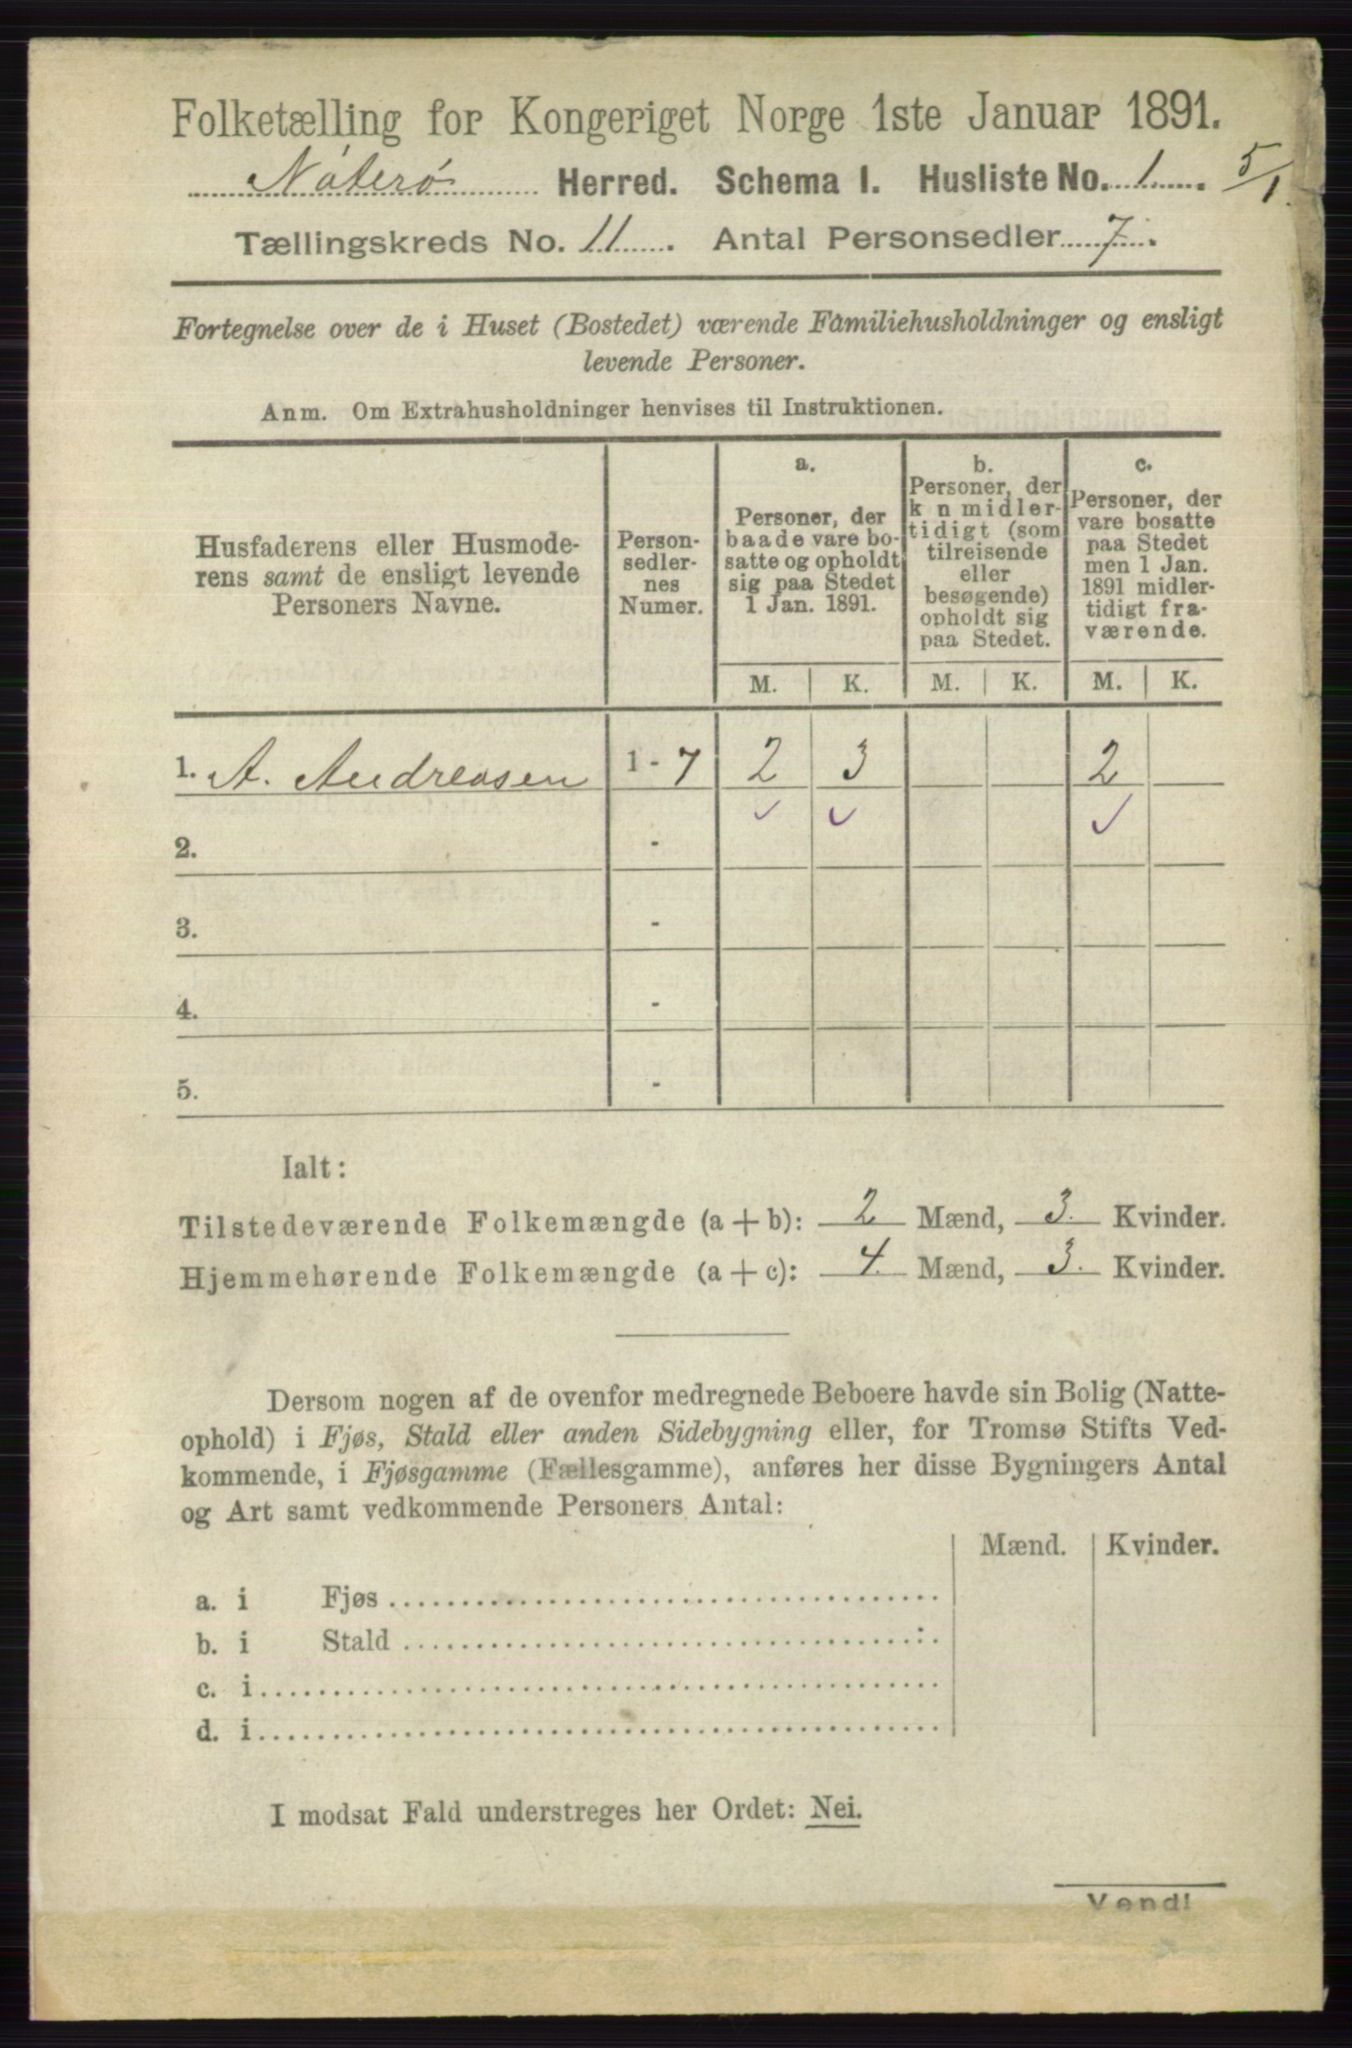 Folketælling for Kongeriget Norge 1ste Januar 1891.
Nøterø Herred. Schema I. Husliste No. 1. 5/1
Tællingskreds No. 11. Antal Personsedler 7.
Fortegnelse over de i Huset (Bostedet) værende Familiehusholdninger og ensligt
levende Personer.
Anm. Om Extrahusholdninger henvises til Instruktionen.
Husfaderens eller Husmode-
rens samt de ensligt levende
Personers Navne.
Person-
sedler-
nes
Numer.
a.
Personer, der
baade vare bo-
satte og opholdt
sig paa Stedet
1 Jan. 1891.
b.
Personer, der
k n midler-
tidigt (som
tilreisende
eller
besøgende)
opholdt sig
paa Stedet.
c.
Personer, der
vare bosatte
paa Stedet
men 1 Jan.
1891 midler-
tidigt fra-
værende.
M. K. M. K. M. K.
1. A. Andreasen 1 - 7 2 3 2
✓ ✓ ✓
2. -
3. -
4. -
5. -
Ialt:
Tilstedeværende Folkemængde (a + b): 2 Mænd, 3. Kvinder.
Hjemmehørende Folkemængde (a + c): 4. Mænd, 3. Kvinder.
Dersom nogen af de ovenfor medregnede Beboere havde sin Bolig (Natte-
ophold) i Fjøs, Stald eller anden Sidebygning eller, for Tromsø Stifts Ved-
kommende, i Fjøsgamme (Fællesgamme), anføres her disse Bygningers Antal
og Art samt vedkommende Personers Antal:
Mænd. Kvinder.
a. i Fjøs
b. i Stald
c. i
d. i
I modsat Fald understreges her Ordet: Nei.
Vend!